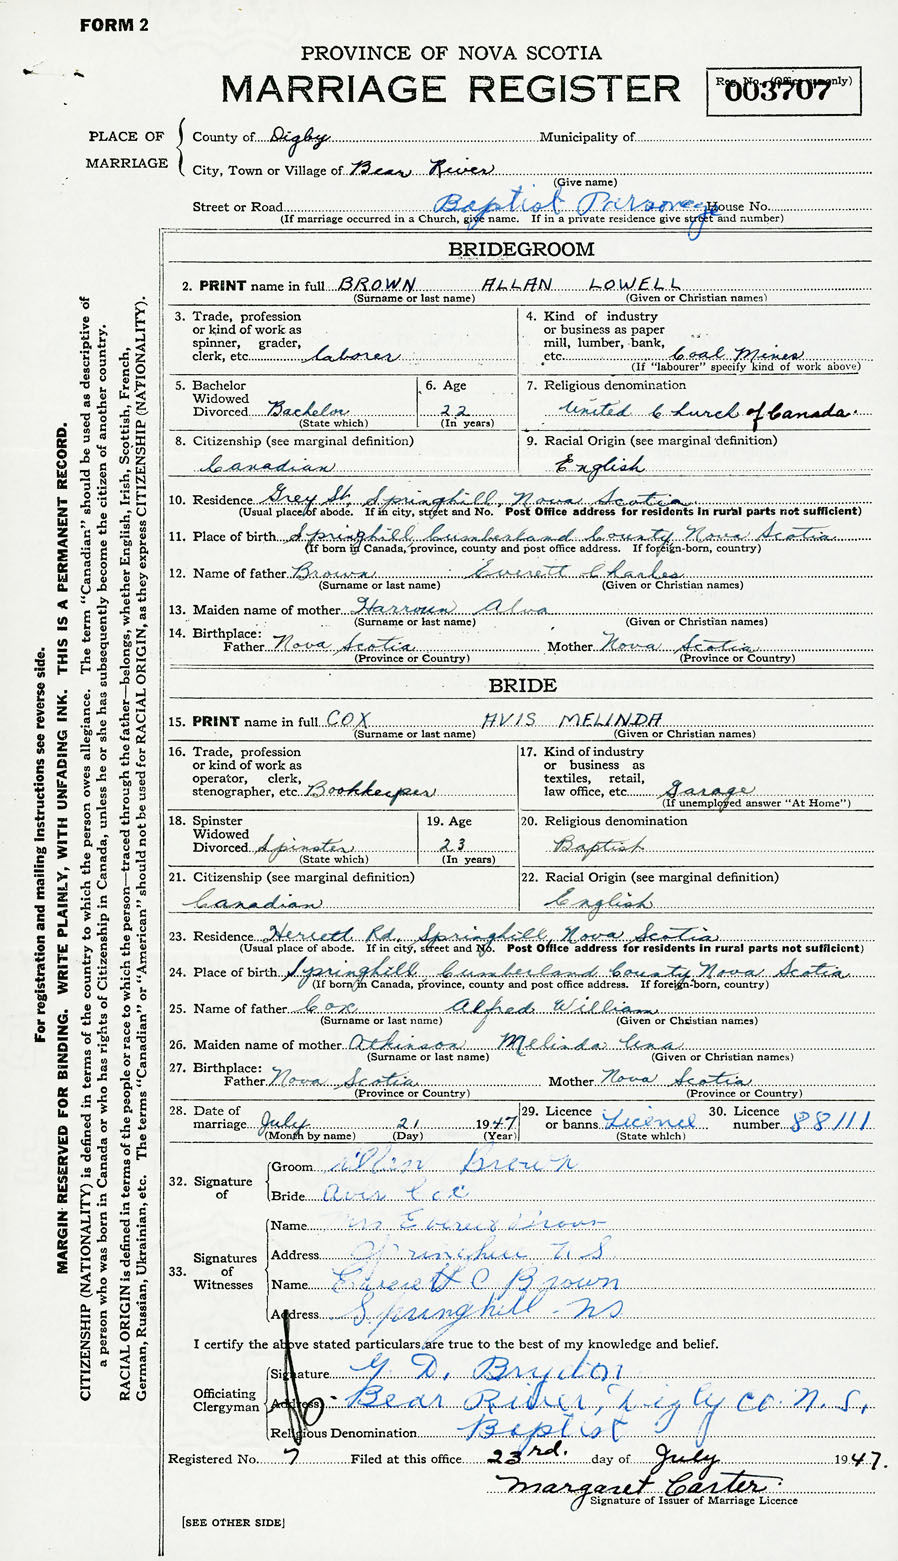 FORM 2
PROVINCE OF NOVA SCOTIA
MARRIAGE REGISTER
Reg. No. (Office use only)
003707
PLACE OF MARRIAGE
County of Digby Municipality of
City, Town or Village of Bear River
(Give name)
Street or Road Baptist Parsonage House No.
(If marriage occurred in a Church, give name. If in a private residence give street and number)
BRIDEGROOM
2. PRINT name in full BROWN ALLAN LOWELL
(Surname or last name) (Given or Christian names)
3. Trade, profession
or kind of work as
spinner, grader,
clerk, etc. Laborer
4. Kind of industry
or business as paper
mill, lumber, bank,
etc. Coal Mines
(If "labourer" specify kind of work above)
5. Bachelor
Widowed
Divorced Bachelor
(State which)
6. Age
22
(In years)
7. Religious denomination
United Church of Canada
8. Citizenship (see marginal definition)
Canadian
9. Racial Origin (see marginal definition)
English
10. Residence Grey St. Springhill, Nova Scotia
(Usual place of abode. If in city, street and No. Post Office address for residents in rural parts not sufficient)
11. Place of birth Springhill Cumberland County Nova Scotia
(If born in Canada, province, county and post office address. If foreign-born, country)
12. Name of father Brown Everett Charles
(Surname or last name) (Given or Christian names)
13. Maiden name of mother Harroun Alva
(Surname or last name) (Given or Christian names)
14. Birthplace:
Father Nova Scotia Mother Nova Scotia
(Province or Country) (Province or Country)
BRIDE
15. PRINT name in full COX AVIS MELINDA
(Surname or last name) (Given or Christian names)
16. Trade, profession
or kind of work as
operator, clerk,
stenographer, etc Bookkeeper
17. Kind of industry
or business as
textiles, retail,
law office, etc. Garage
(If unemployed answer "At Home")
18. Spinster
Widowed
Divorced Spinster
(State which)
19. Age
23
(In years)
20. Religious denomination
Baptist
21. Citizenship (see marginal definition)
Canadian
22. Racial Origin (see marginal definition)
English
23. Residence Herrett Rd. Springhill, Nova Scotia
(Usual place of abode. If in city, street and No. Post Office address for residents in rural parts not sufficient)
24. Place of birth Springhill Cumberland County Nova Scotia
(If born in Canada, province, county and post office address. If foreign-born, country)
25. Name of father Cox Alfred William
(Surname or last name) (Given or Christian names)
26. Maiden name of mother Atkinson Melinda Una
(Surname or last name) (Given or Christian names)
27. Birthplace:
Father Nova Scotia Mother Nova Scotia
(Province or Country) (Province or Country)
28. Date of
marriage July 21 1947
(Month by name) (Day) (Year)
29. Licence
or banns Licence
(State which)
30. Licence
number 88111
32. Signature of
Groom Allen Brown
Bride Avis Cox
33. Signatures of Witnesses
Name Mrs Everett Brown
Address Springhill N S
Name Everett C Brown
Address Springhill NS
I certify the above stated particulars are true to the best of my knowledge and belief.
Officiating Clergyman
Signature G. D. Brydon
Address Bear River, Digby Co. N. S.
Religious Denomination Baptist
Registered No. 7 Filed at this office 23rd. day of July 1947.
Margaret Carter
Signature of Issuer of Marriage Licence
[SEE OTHER SIDE]
For registration and mailing instructions see reverse side.
MARGIN RESERVED FOR BINDING. WRITE PLAINLY, WITH UNFADING INK. THIS IS A PERMANENT RECORD.
CITIZENSHIP (NATIONALITY) is defined in terms of the country to which the person owes allegiance. The term "Canadian" should be used as descriptive of
a person who was born in Canada or who has rights of Citizenship in Canada, unless he or she has subsequently become the citizen of another country.
RACIAL ORIGIN is defined in terms of the people or race to which the person—traced through the father—belongs, whether English, Irish, Scottish, French,
German, Russian, Ukrainian, etc. The terms "Canadian" or "American" should not be used for RACIAL ORIGIN, as they express CITIZENSHIP (NATIONALITY).